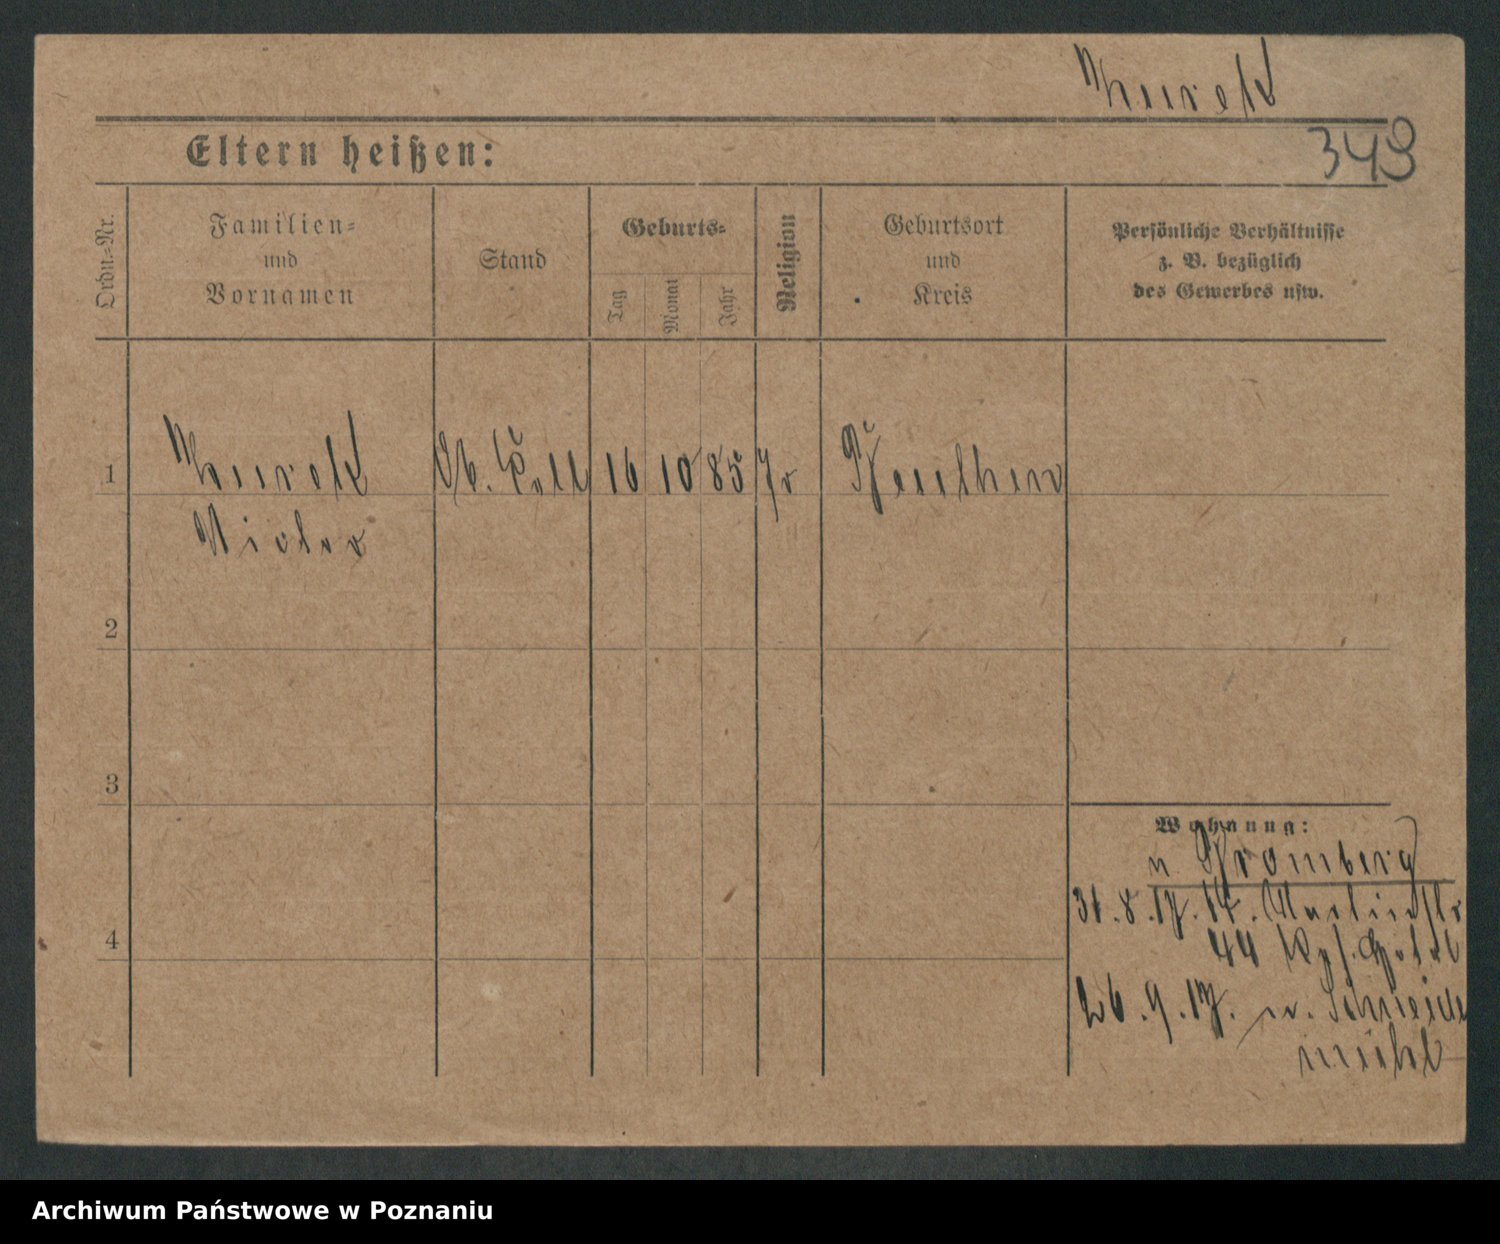 349
Eltern heißen:
Ordn.-Nr.
Familien-
und
Vornamen
Stand
Geburts-
Tag
Monat
Jahr
Religion
Geburtsort
und
Kreis
Persönliche Verhältnisse
z. B. bezüglich
des Gewerbes usw.
1
16 10 85
Beuthen
Victor
2
3
4
Wohnung:
v. Bromberg
31.8.17. 14. Martinstr
44
26.9.17. n. Schneide
mühl
Archiwum Państwowe w Poznaniu